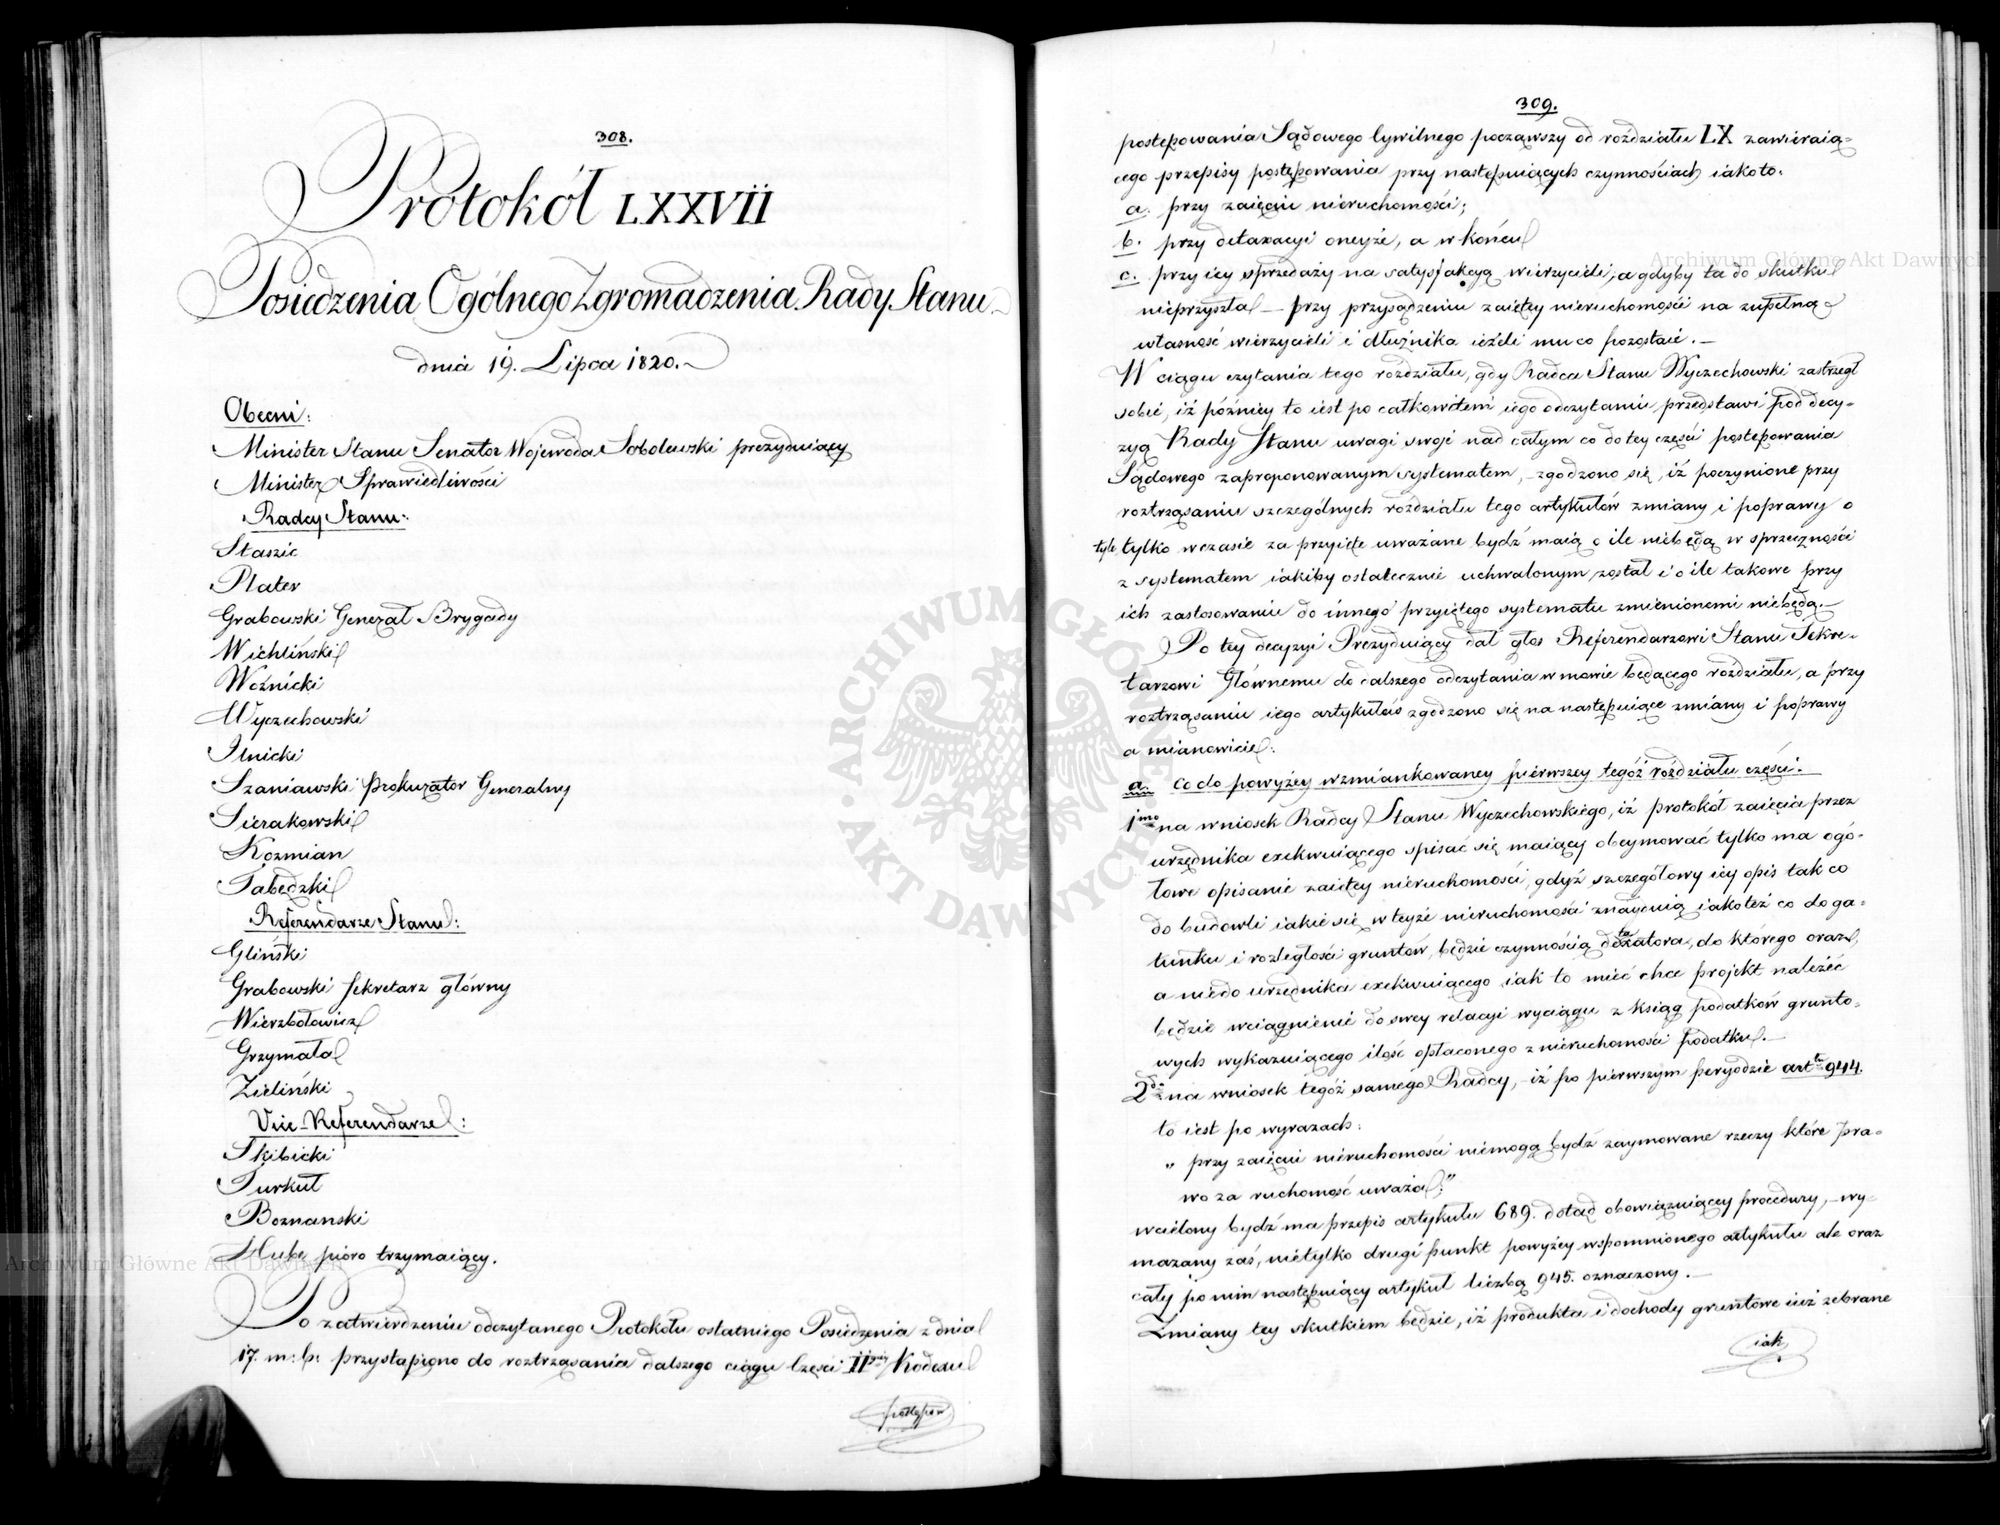 308.
Protokół LXXVII
Posiedzenia Ogólnego Zgromadzenia Rady Stanu
dnia 19. Lipca 1820.
Obecni:
Minister Stanu Senator Wojewoda Sobolewski prezyduiący
Minister Sprawiedliwości
Radcy Stanu:
Staszic
Plater
Grabowski Generał Brygady
Wichliński
Woźnicki
Wyczechowski
Ilnicki
Szaniawski Prokurator Generalny
Sierakowski
Kozmian
Tabędzki
Referendarze Stanu:
Gliński
Grabowski Sekretarz główny
Wierzbołowicz
Grzymała
Zieliński
Vice-Referendarze:
Skibicki
Turkuł
Boznanski
Hube pióro trzymaiący.
Po zatwierdzeniu odczytanego Protokółu ostatniego Posiedzenia z dnia
17. m: b: przystąpiono do roztrząsania dalszego ciągu Części II giey Kodexu
postępow
309.
postępowania Sądowego Cywilnego począwszy od rozdziału LX zawieraią=
cego przepisy postępowania przy następuiących czynnościach iako to:
a. przy zaięciu nieruchomości;
b. przy detaxacyi oneyże, a w końcu
c. przy iey sprzedaży na satysfakcyą wierzycieli, a gdyby ta do skutku
nieprzyszła — przy przysądzeniu zaiętey nieruchomości na zupełną
własność wierzycieli i dłużnika ieżeli mu co pozostaie. —
W ciągu czytania tego rozdziału, gdy Radca Stanu Wyczechowski zastrzegł
sobie, iż późniey to iest po całkowitem iego odczytaniu, przedstawi pod decy-
zyą Rady Stanu uwagi swoie nad całym co do tey części postępowania
Sądowego zaproponowanym systematem, zgodzono się, iż poczynione przy
roztrząsaniu szczególnych rozdziału tego artykułów zmiany i poprawy o
tyle tylko w czasie za przyięte uważane bydź maią o ile niebędą w sprzeczności
z systematem iakiby ostatecznie uchwalonym został i o ile takowe przy
ich zastosowaniu do innego przyiętego systematu zmienionemi niebędą. —
Po tey decyzyi Prezyduiący dał głos Referendarzowi Stanu Sekre-
tarzowi Głównemu do dalszego odczytania w mowie będącego rozdziału, a przy
roztrząsaniu iego artykułów zgodzono się na następuiące zmiany i poprawy
a mianowicie:
a. Co do powyżey wzmiankowaney pierwszey tegoż rozdziału części.
1mo na wniosek Radcy Stanu Wyczechowskiego, iż protokół zaięcia przez
urzędnika exekwuiącego spisać się maiący obeymować tylko ma ogó-
łowe opisanie zaiętey nieruchomości, gdyż szczegółowy iey opis tak co
do budowli iakie się w teyże nieruchomości znayduią iakoteż co do ga-
tunku i rozległości gruntów, będzie czynnością detaxatora, do którego oraz,
a nie do urzędnika exekwuiącego iak to mieć chce projekt należeć
będzie wciągnienie do swey relacyi wyciągu z ksiąg podatków grunto-
wych wykazuiącego ilość opłaconego z nieruchomości podatku. —
2do na wniosek tegoż samego Radcy, iż po pierwszym peryodzie artłu 944.
to iest po wyrazach:
„ przy zaięciu nieruchomości niemogą bydź zaymowane rzeczy które Pra-
wo za ruchomość uważa;"
wcielony bydź ma przepis artykułu 689. dotąd obowiązuiącey procedury, — wy-
mazany zaś, nietylko drugi punkt powyżey wspomnionego artykułu ale oraz
cały po nim następuiący artykuł liczbą 945. oznaczony. —
Zmiany tey skutkiem będzie, iż produkta i dochody gruntowe iuż zebrane
iak
ARCHIWUM GŁÓWNE AKT DAWNYCH
Archiwum Główne Akt Dawnych
Archiwum Główne Akt Dawnych
Archiwum Główne Akt Dawnych